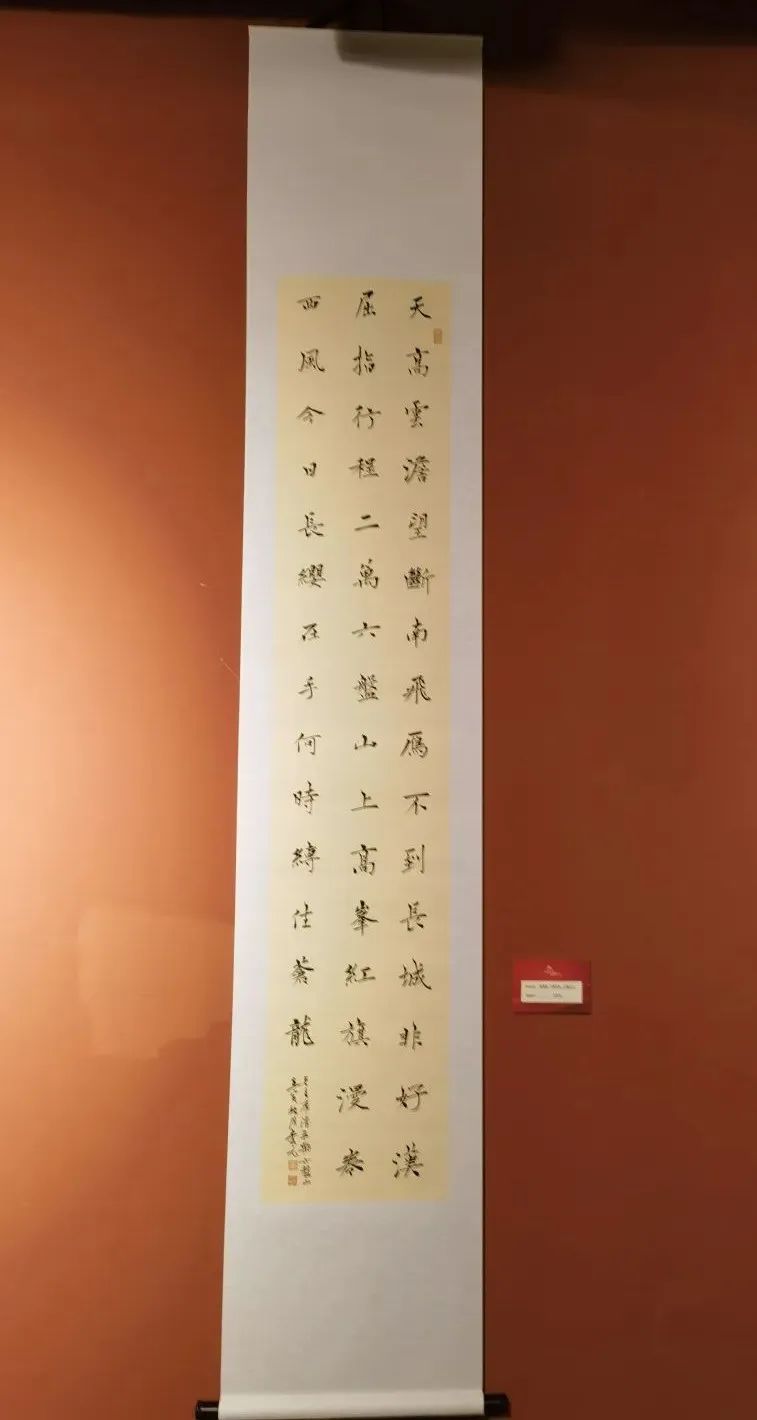 天高雲澹望斷南飛鴈不到長城非好漢
屈指行程二萬六盤山上高峯紅旗漫卷
西風今日長纓在手何時縛住蒼龍
毛主席清平樂六盤山